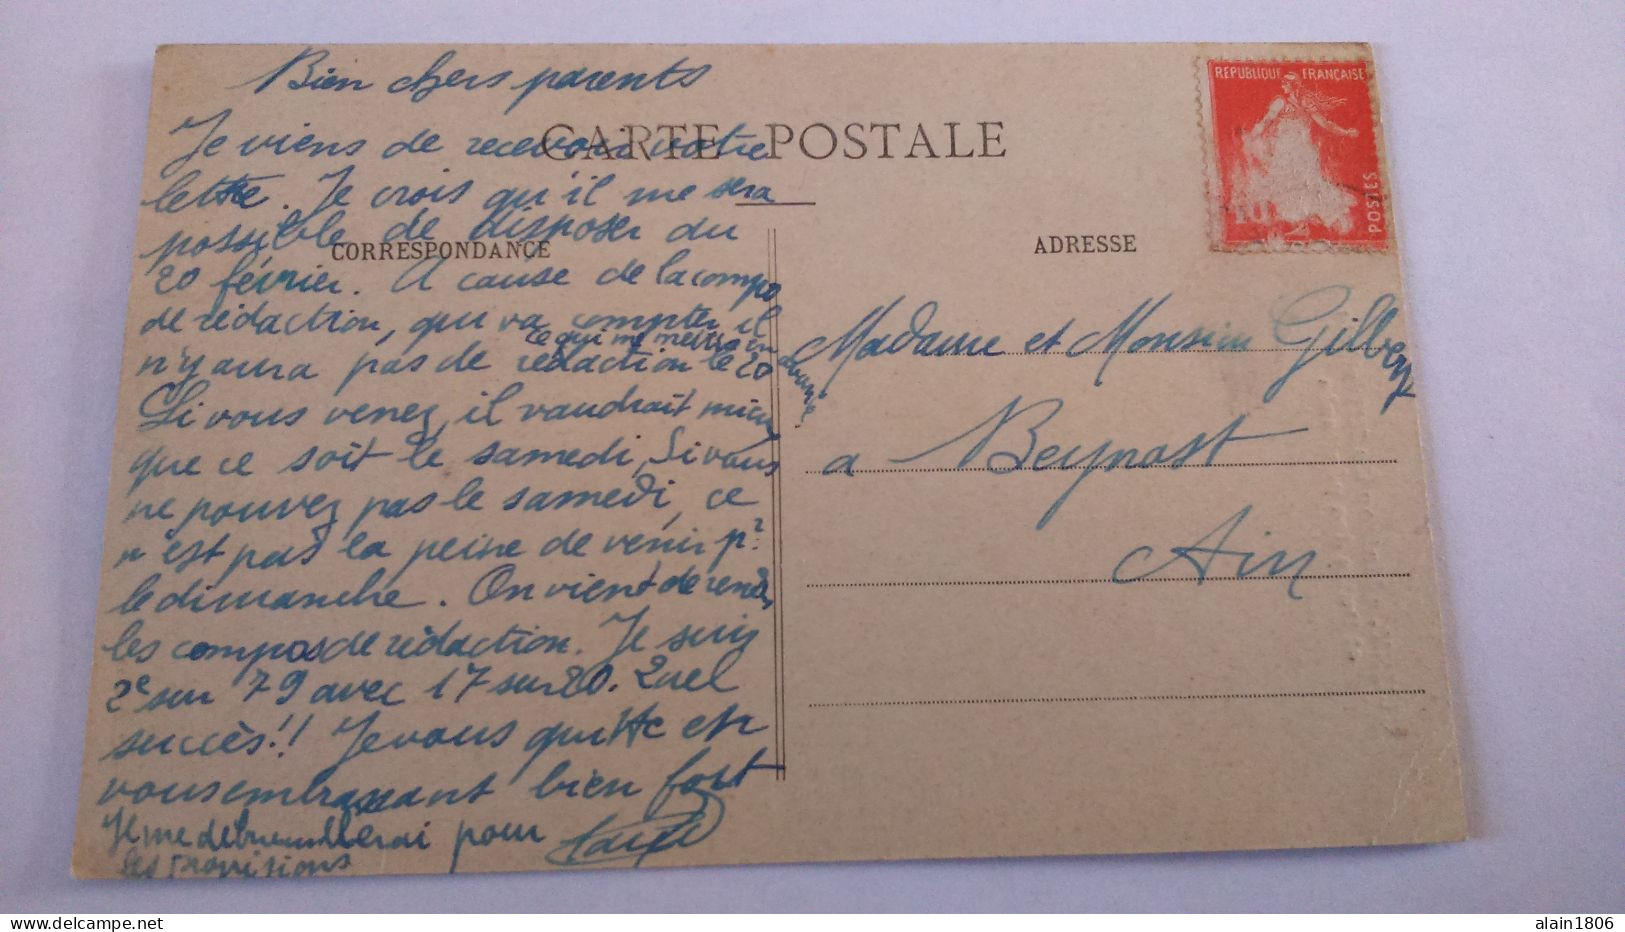 Bien chers parents
Je viens de recevoir votre
lettre. Je crois qu'il me sera
possible de disposer du
20 février. A cause de la compo
de rédaction, qui va compter il
n'y aura pas de rédaction le 20
ce qui me mettra en
Si vous venez, il vaudrait mieux
que ce soit le samedi, Si vous
ne pouvez pas le samedi, ce
n'est pas la peine de venir
le dimanche. On vient de rendre
les compos de rédaction. Je suis
2e sur 79 avec 17 sur 20. Quel
succès!! Je vous quitte en
vous embrassant bien fort
Je me debrouillerai pour
les provisions
CARTE POSTALE
CORRESPONDANCE
ADRESSE
REPUBLIQUE FRANÇAISE
POSTES
Madame et Monsieur
a Beynost
Ain
alain1806